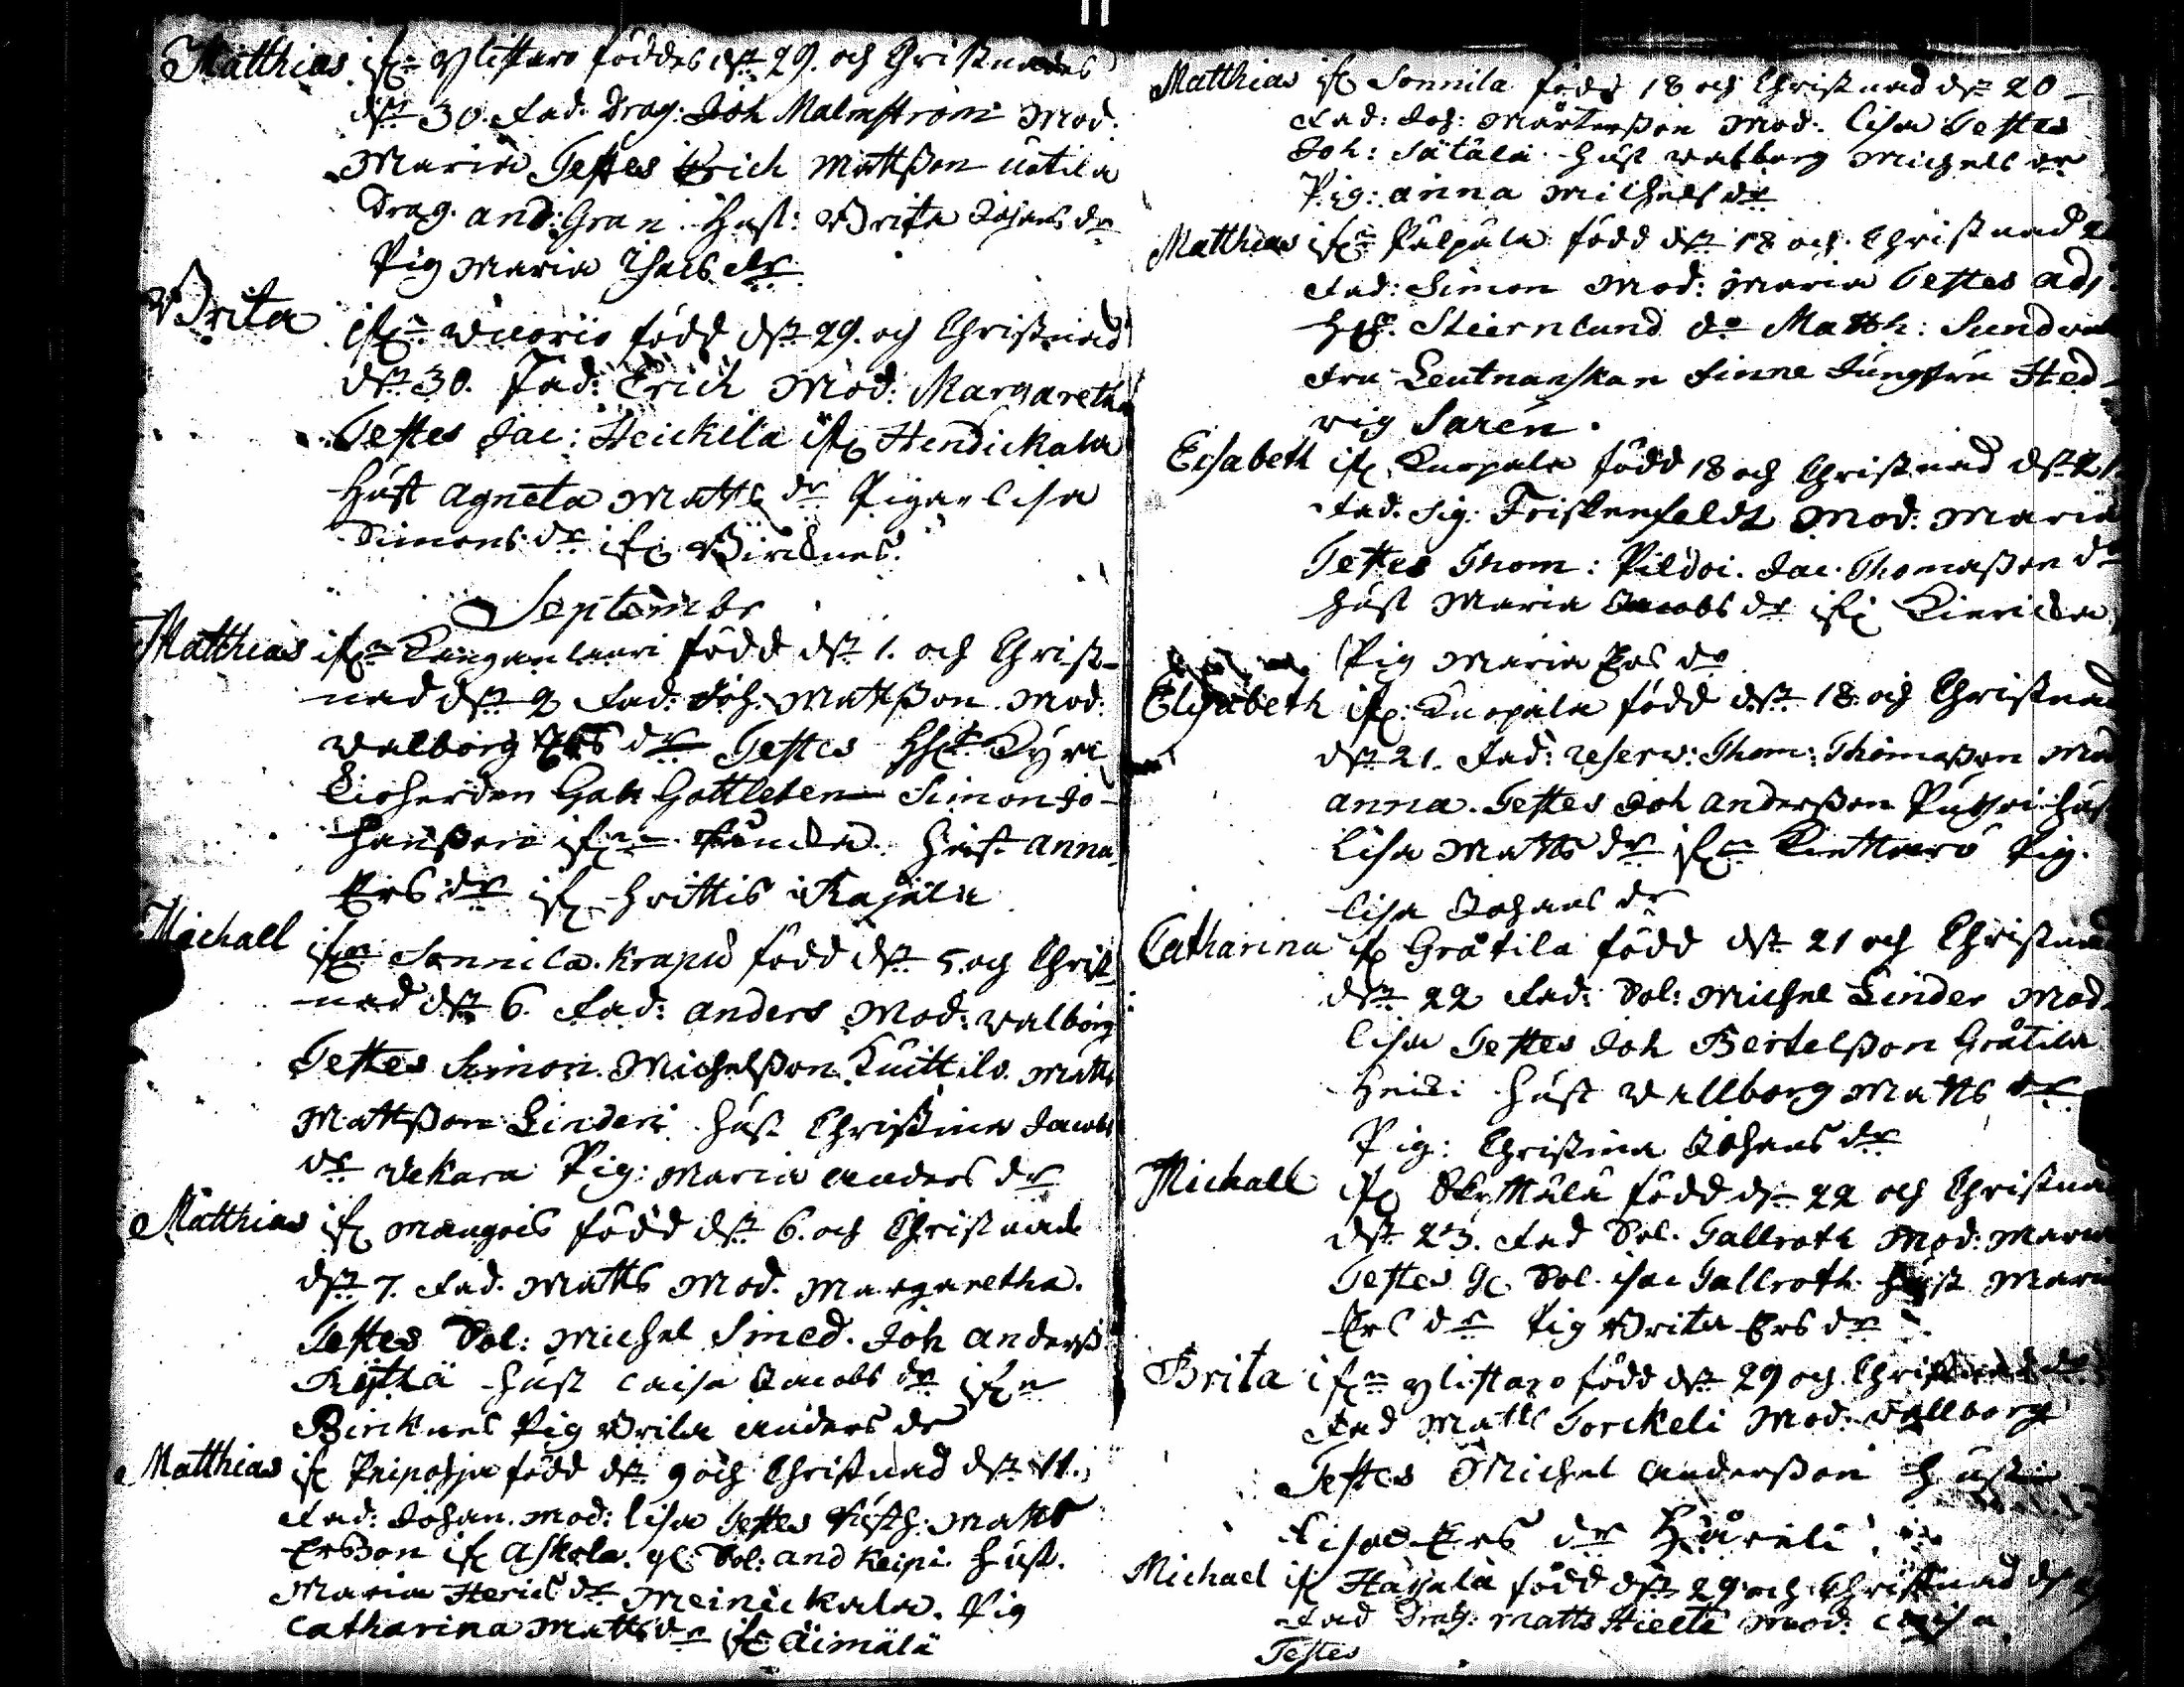 Matthias if:n Ylistaro föddes d: 29. och Christnades
d: 30. Fad: Drag: Joh Malmström Mod:
Maria Testes Erich Mattsson uotila
Drag. And: Gran. Hust: Brita Johans dr
Pig Maria Thoms dr
Brita
if:n Wuorio född d: 29. och Christnad
d: 30. Fad: Erich Mod: Margaretha
Testes Jac: Heickilä if: Hendickala
Hust Agneta Matts dr Pigan Lisa
Simons dr if: Birknes
Septembr
Matthias if:n Kanganlauri född d: 1. och Christ-
nad d: 2 Fad: Joh: Mattsson Mod:
Walborg Ers dr Testes
Gab Gottleben Simon Jo-
hansson if:n Hust Anna
Ers dr if: Huittis Rajala
Michael if:n Sonnila Krapu född d: 5. och Christ-
nad d: 6. Fad: Anders Mod: Walborg
Testes Simon Michelsson Kuittilo Matts
Mattsson Linderi Hust Christina Jacobs
dr Wekara Pig: Maria Anders dr
Matthias if: Mangois född d: 6. och Christnad
d: 7. Fad. Matts Mod. Margaretha.
Testes Sol: Michel Smed. Joh Anderss.
Rythä Hust Caisa Jacobs dr if:n
Birknes Pig Brita Anders dr
Matthias if: Pripohja född d: 9 och Christnad d: 11.
Fad: Johan. Mod: Lisa Testes Matts
Ersson if: Askola. gl: Sol: And Keipi Hust.
Maria Henrics dr Meinickala. Pig
Catharina Matts dr if: Äimälä
Matthias if: Sonnila född 18 och Christnad d: 20
Fad: Joh: Mårtensson Mod: Lisa Testes
Joh: Sätälä Hust Walborg Michels dr
Pig: Anna Michels dr
Matthias if:n Pälpälä född d: 18 och Christnad
Fad: Simon Mod: Maria Testes Adj
H: Stiernlund do Matth: Sundwal
Fru Leutnanskan Finne Jungfru Hed-
vig Saren.
Elisabeth if: Kuopala född 18 och Christnad d: 21.
Fad. Sig: Friskenfeldt Mod: Maria
Testes Thom: Pildoi. Jac. Thomasson
Hust Maria Jacobs dr if:
Pig Maria Ers dr
Elisabeth if: Kuopala född d: 18 och Christnad
d: 21. Fad: reserv: Thom: Thomasson Mod
Anna. Testes Joh Andersson Hust
Lisa Matts dr if:n Pig.
Lisa Johans dr
Catharina if: Gråtila född d: 21 och Christnad
d: 22 Fad: Sol: Michel Linder Mod.
Lisa Testes Joh Bertelsson Gråtila
Heiki Hust Wallborg Matts dr
Pig: Christina Johans dr
Michael if: Skyttälä född d: 22 och Christnad
d: 23. Fad Sol. Tallroth Mod: Maria
Testes gl Sol. Isac Tallroth Hust Maria
Ers dr Pig Brita Ers dr
Brita if:n Ylistaro född d: 29 och Christnad
Fad Matts Torckeli Mod: Wallborg
Testes Michel Andersson Hust
Lisa Ers dr
Michael if: född d: 29 och Christnad d:
Fad Drag: Matts Mod: Caisa
Testes